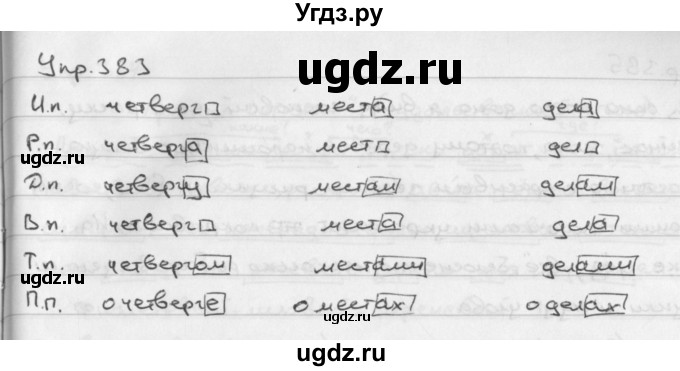 Угдз.ру
Упр.383
ugdz.ru
И.п. четверг места дела
Р.п. четверга мест дел
ugdz.ru
Д.п. четвергу местам делам
В.п. четверг места дела
Т.п. четвергом местами делами
ugdz.ru
П.п. о четверге о местах о делах
ugdz.ru
ugdz.ru